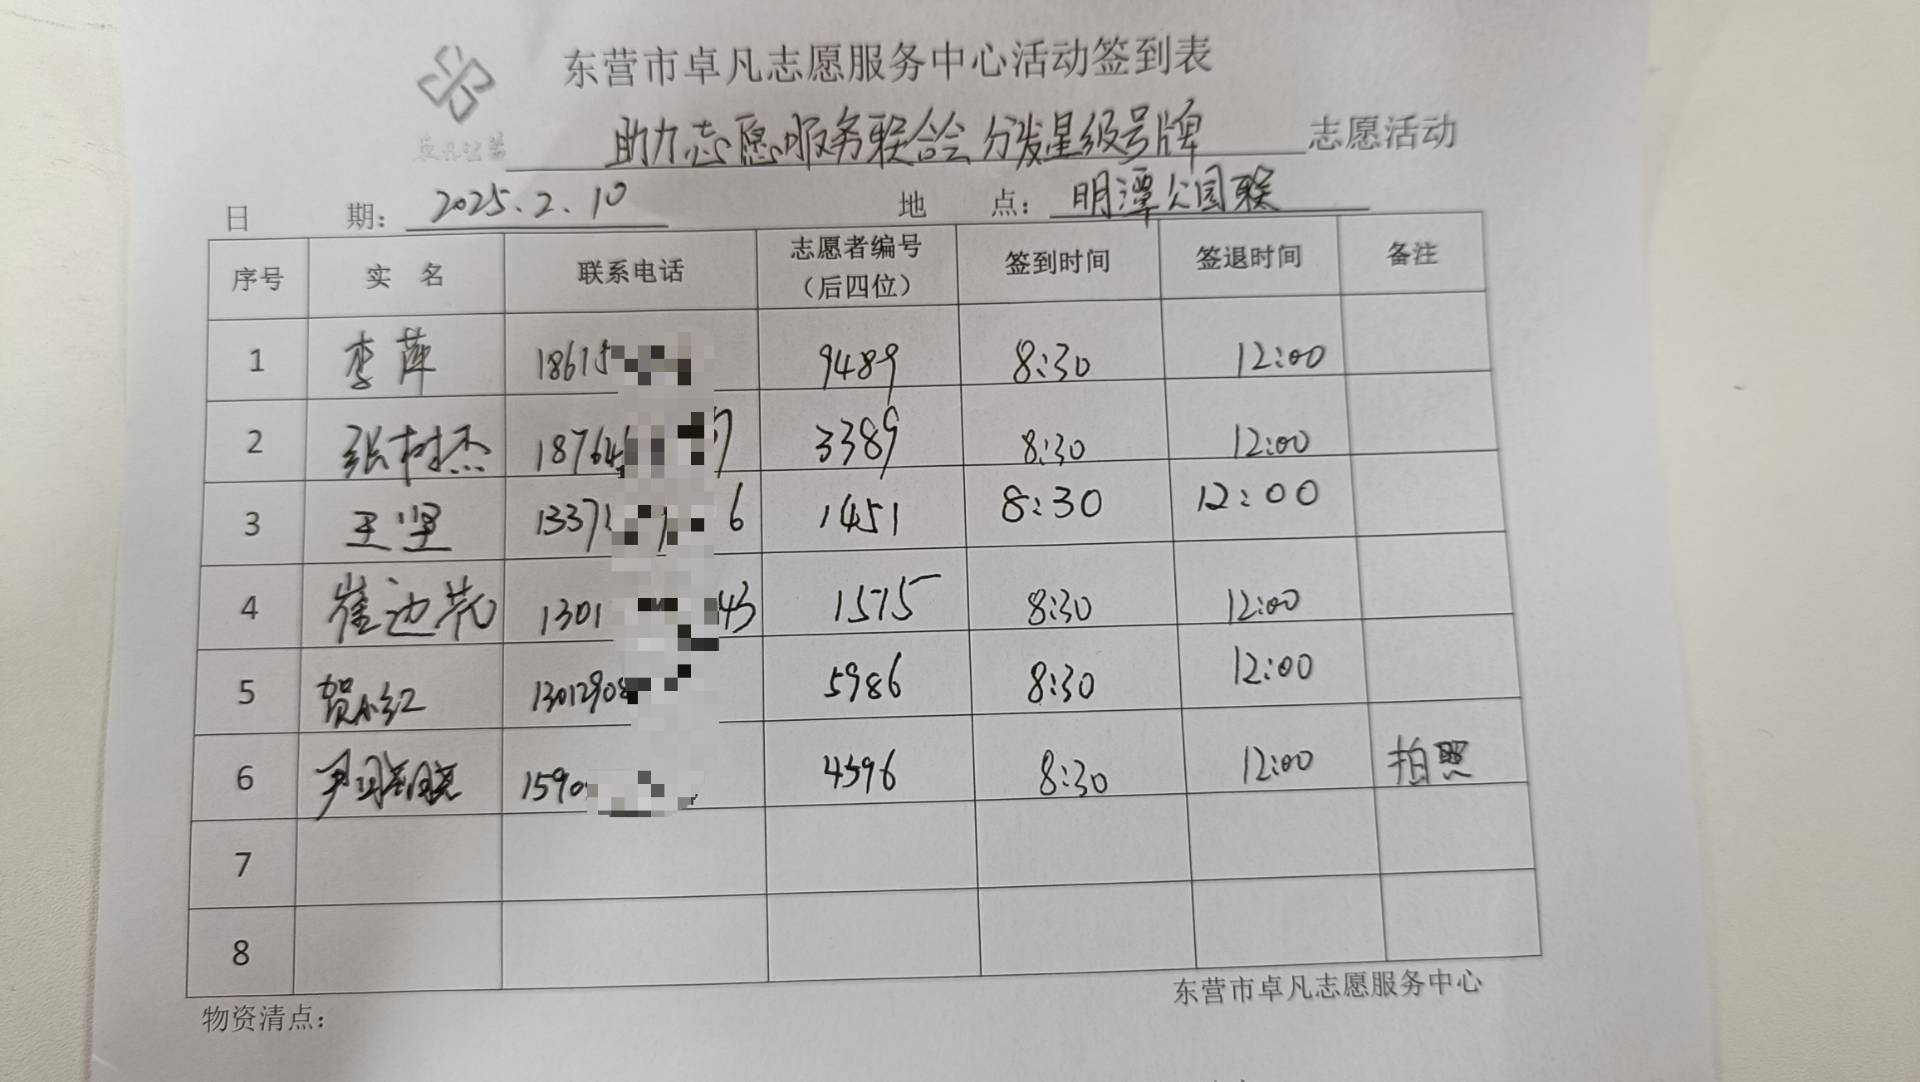 东营市卓凡志愿服务中心活动签到表
助力志愿服务联合会分发星级号牌 志愿活动
日 期: 2025.2.10 地 点: 明潭公园联
序号 实 名 联系电话 志愿者编号(后四位) 签到时间 签退时间 备注
1 李萍 18615 9489 8:30 12:00
2 张树杰 18764 7 3389 8:30 12:00
3 王坚 1337 6 1451 8:30 12:00
4 崔 1301 43 1575 8:30 12:00
5 贺小红 1301290 5986 8:30 12:00
6 尹 1590 4396 8:30 12:00 拍照
7
8
东营市卓凡志愿服务中心
物资清点: